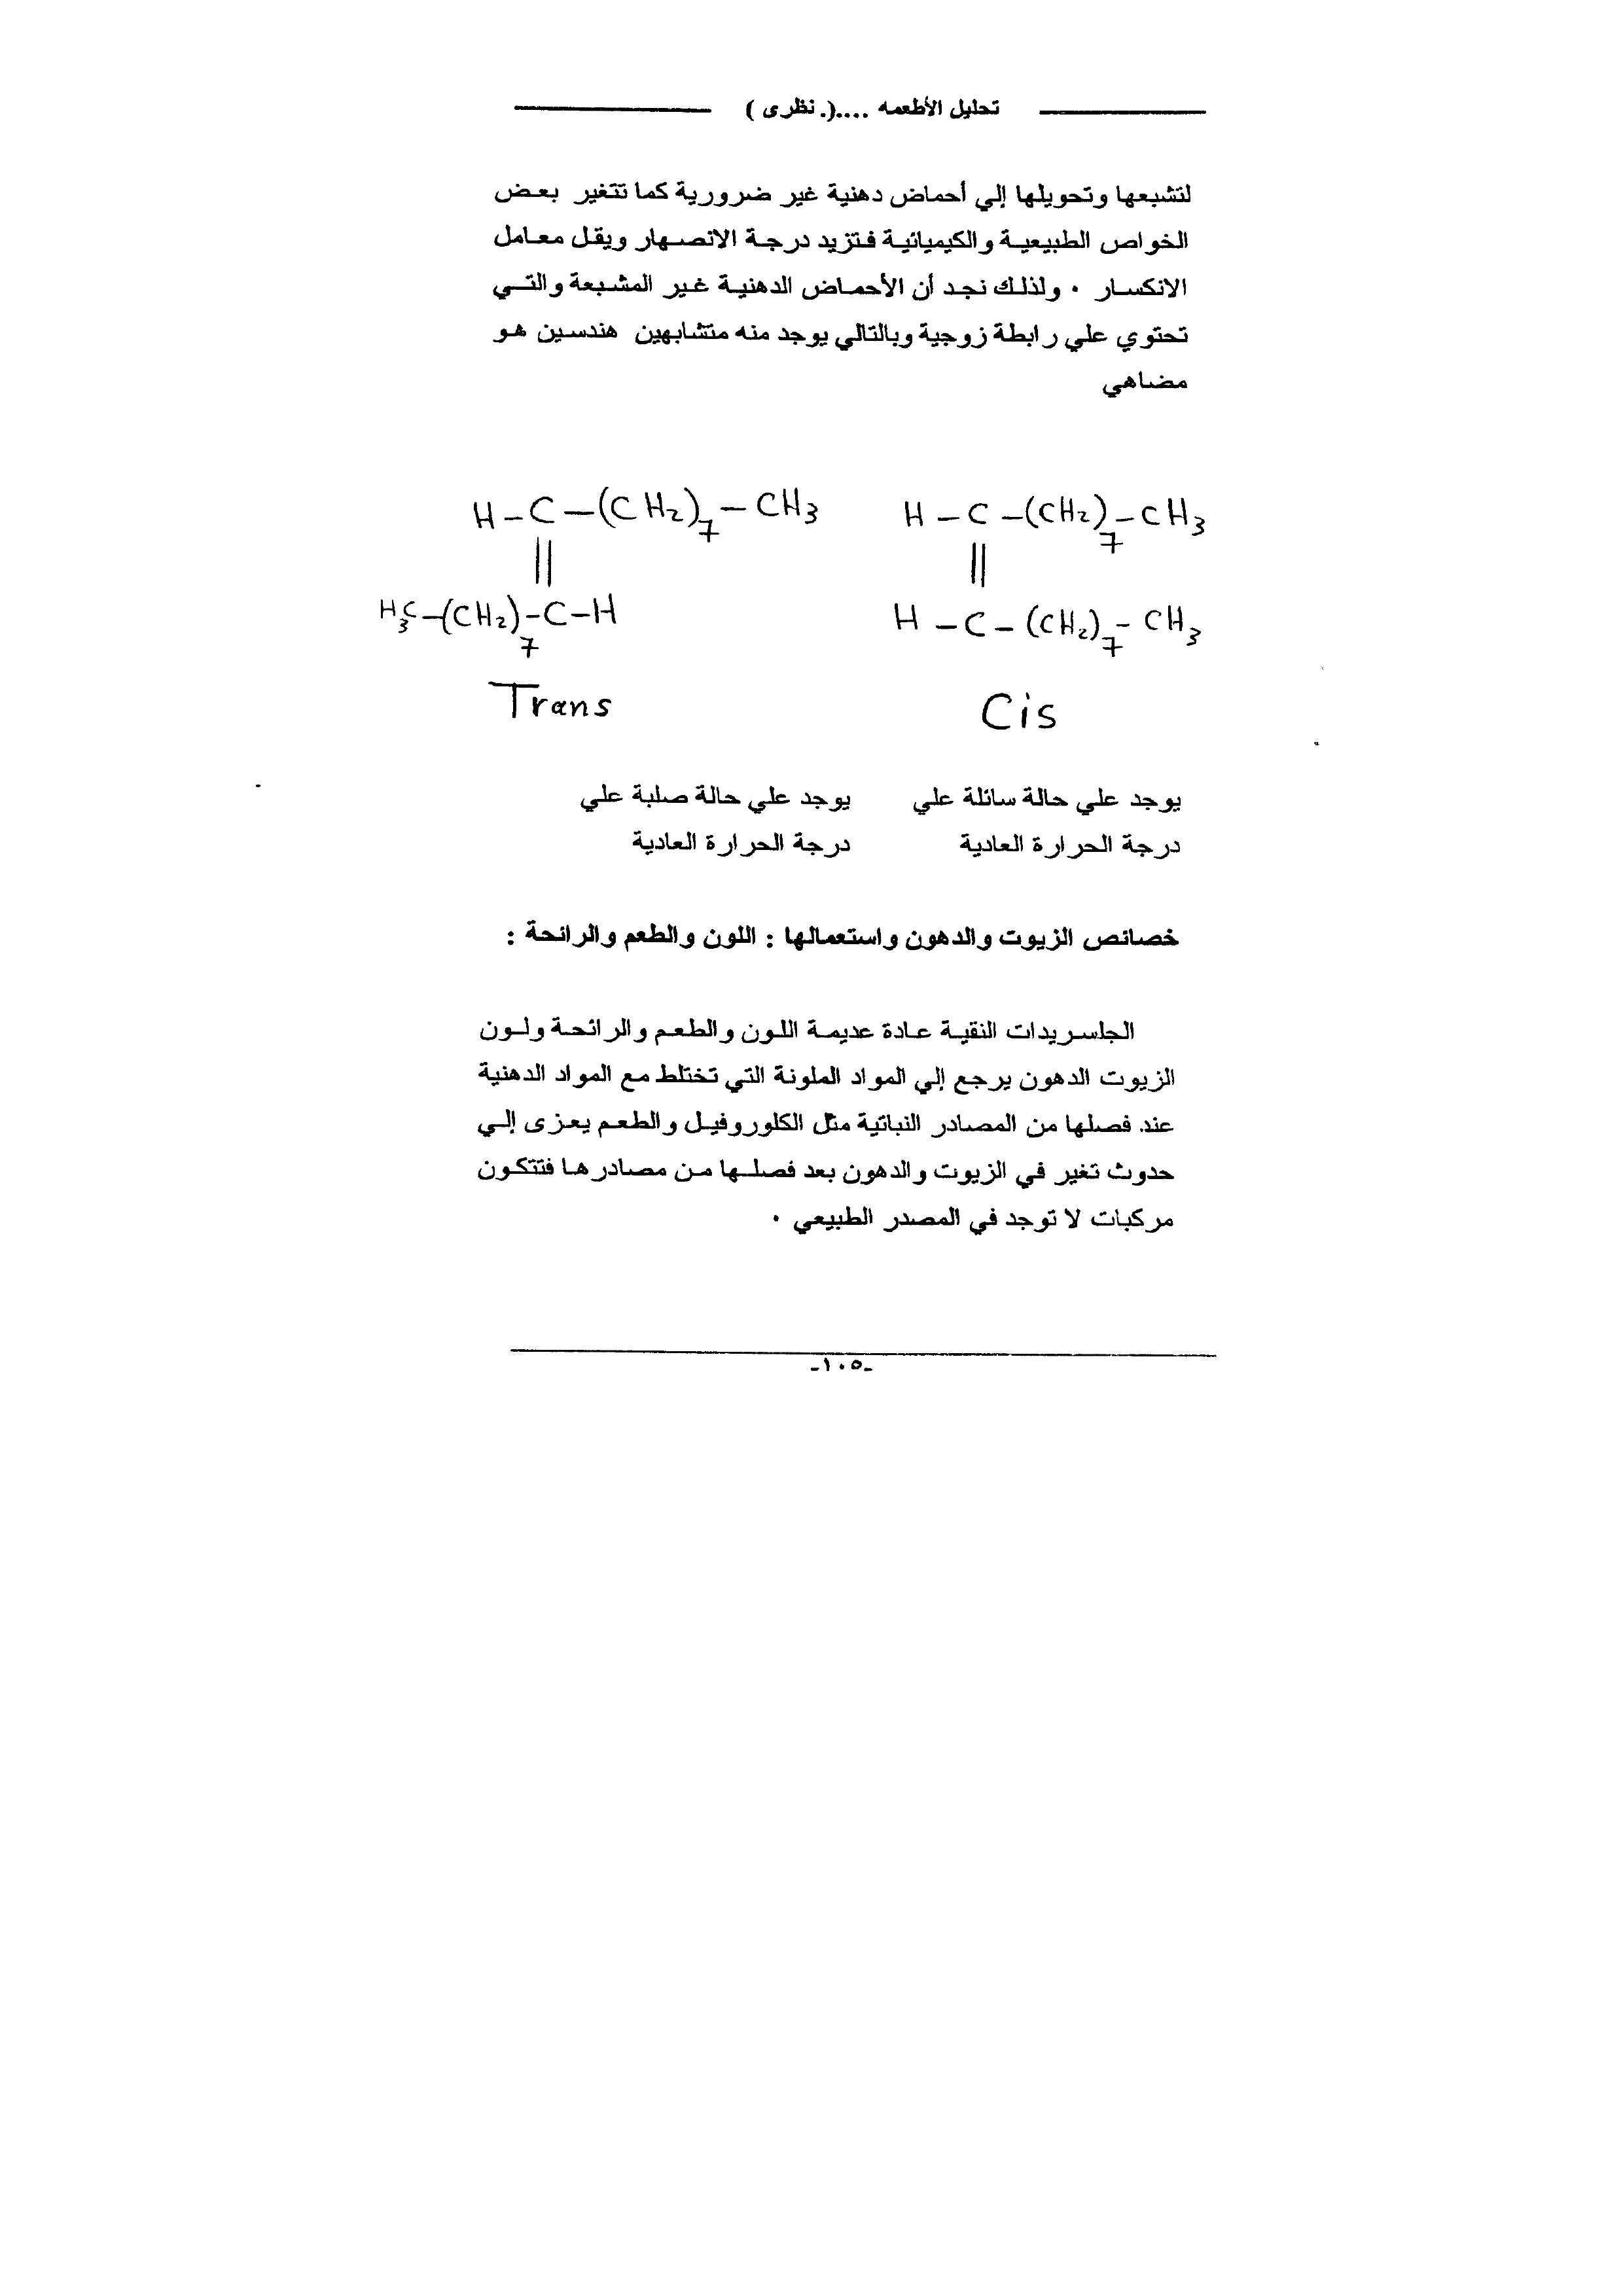 تحليل الأطعمه ....(. نظرى )
لتشبعها وتحويلها إلي أحماض دهنية غير ضرورية كما تتغير بعض
الخواص الطبيعية والكيميائية فتزيد درجة الانصهار ويقل معامل
الانكسار ٠ ولذلك نجد أن الأحماض الدهنية غير المشبعة والتي
تحتوي علي رابطة زوجية وبالتالي يوجد منه متشابهين هندسين هو
مضاهي
H – C – (CH2)7 – CH3
||
H – C – (CH2)7 – CH3
Cis
H – C – (CH2)7 – CH3
||
H3C – (CH2)7 – C – H
Trans
يوجد علي حالة سائلة علي
درجة الحرارة العادية
يوجد علي حالة صلبة علي
درجة الحرارة العادية
خصائص الزيوت والدهون واستعمالها : اللون والطعم والرائحة :
الجلسريدات النقية عادة عديمة اللون والطعم والرائحة ولون
الزيوت الدهون يرجع إلي المواد الملونة التي تختلط مع المواد الدهنية
عند فصلها من المصادر النباتية مثل الكلوروفيل والطعم يعزى إلي
حدوث تغير في الزيوت والدهون بعد فصلها من مصادرها فتتكون
مركبات لا توجد في المصدر الطبيعي ٠
-١٠٥-